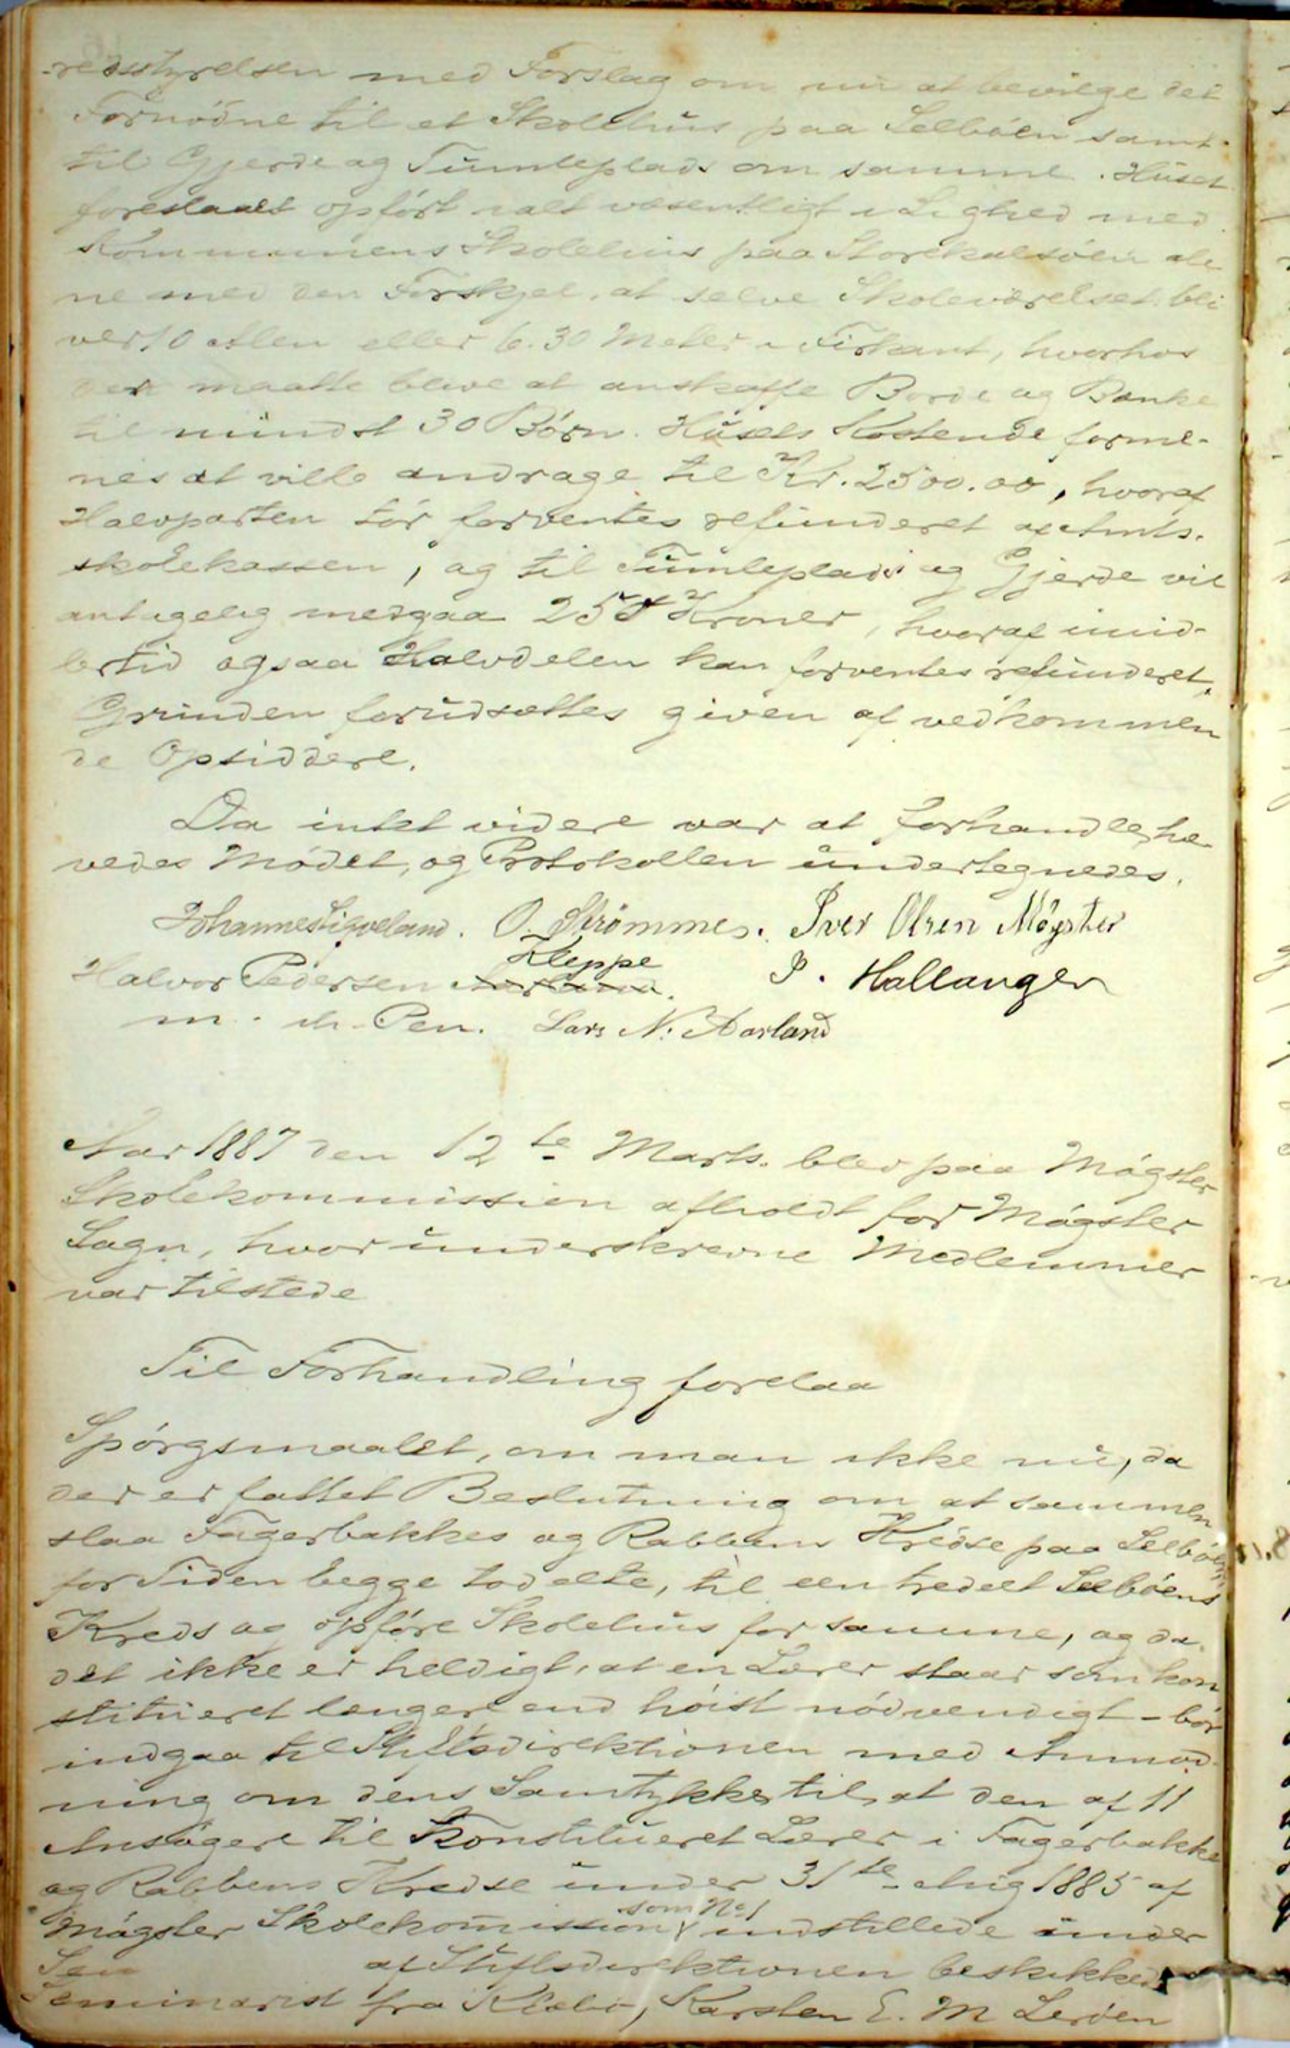 redsstyrelsen med Forslag om nu at bevilge det
Fornødne til et Skolehus paa Selbøen samt
til Gjerde og Tumleplads om samme. Huset
foreslaaes opført ialt væsentligt i Lighed med
Kommunens Skolehus paa Storekalsøen ale
ne med den Forskjel, at selve Skoleværelset bli
ver 10 Alen eller 6.30 Meter i Firkant, hvorhos
der maatte blive at anskaffe Borde og Bænke
til mindst 30 Børn. Husets Kostende forme-
nes at ville andrage til Kr. 2500.00, hvoraf
Halvparten tør forventes refunderet af Amts-
skolekassen, og til Tumleplads og Gjerde vil
antagelig medgaa 250 Kroner, hvoraf imid-
lertid ogsaa Halvdelen kan forventes refunderet.
Grunden forudsættes given af vedkommen
de Opsiddere.
Da intet videre var at forhandle, hæ-
vedes Mødet, og Protokollen undertegnedes.
Johannes Ligveland. O. Strømmes. Iver Olsen Møgster
Halvor Pedersen Kleppe P. Hallanger
m. ih. Pen. Lars N. Aarland
Aar 1887 den 12te Marts. blev paa Møgster
Skolekommission afholdt for Møgster
Sogn, hvor underskrevne Medlemmer
var tilstede
Til Forhandling forelaa
Spørgsmaalet, om man ikke nu, da
der er fattet Beslutning om at sammen
slaa Fagerbakkes og Rabbens Kredse paa Selbøen,
for Tiden begge todelte, til een tredelt Selbøens
Kreds og opføre Skolehus for samme, og da
det ikke er heldigt, at en Lærer staar som kon
stitueret længere end høist nødvendigt – bør
indgaa til Stiftsdirektionen med Anmod-
ning om dens Samtykke til, at den af 11
Ansøgere til Konstitueret Lærer i Fagerbakke
og Rabbens Kredse under 31te Aug 1885 af
Møgster Skolekommission som No 1 indstillede under
af Stiftsdirektionen beskikkede
Seminarist fra Klæbo, Karsten E. M Lerøen